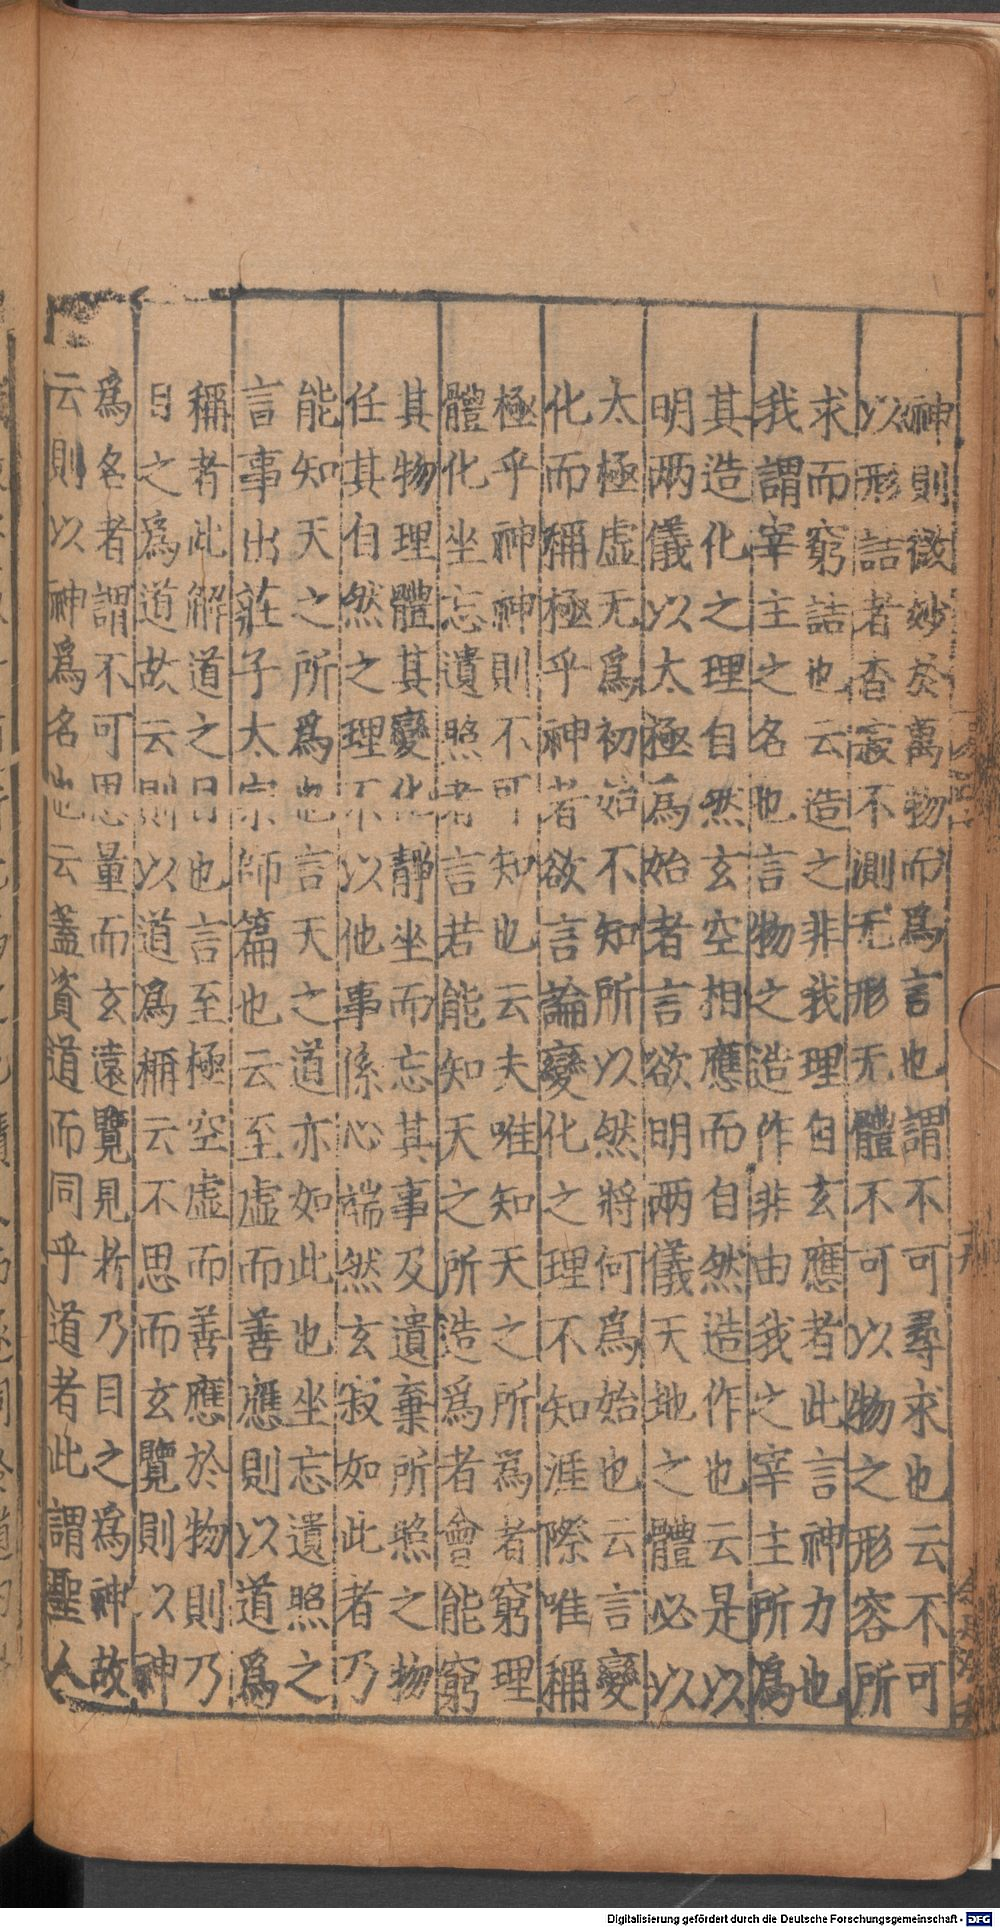 神則微妙於萬物而爲言也謂不可尋求也云不可
以形詰者杳寂不測无形无體不可以物之形容所
求而窮詰也云造之非我理自玄應者此言神力也
我謂宰主之名也言物之造作非由我之宰主所爲
其造化之理自然玄空相應而自然造作也云是以
明兩儀以太極爲始者言欲明兩儀天地之體必以
太極虛无爲初始不知所以然將何爲始也云言變
化而稱極乎神者欲言論變化之理不知涯際唯稱
極乎神神則不可知也云夫唯知天之所爲者窮理
體化坐忘遺照者言若能知天之所造爲者會能窮
其物理體其變化靜坐而忘其事及遺棄所照之物
任其自然之理不以他事係心端然玄寂如此者乃
能知天之所爲也言天之道亦如此也坐忘遺照之
言事出莊子太宗師篇也云至虛而善應則以道爲
稱者此解道之目也言至極空虛而善應於物則乃
目之爲道故云則以道爲稱云不思而玄覽則以神
爲名者謂不可思量而玄遠覽見者乃目之爲神故
云則以神爲名也云蓋資道而同乎道者此謂聖人
Digitalisierung gefördert durch die Deutsche Forschungsgemeinschaft - DFG